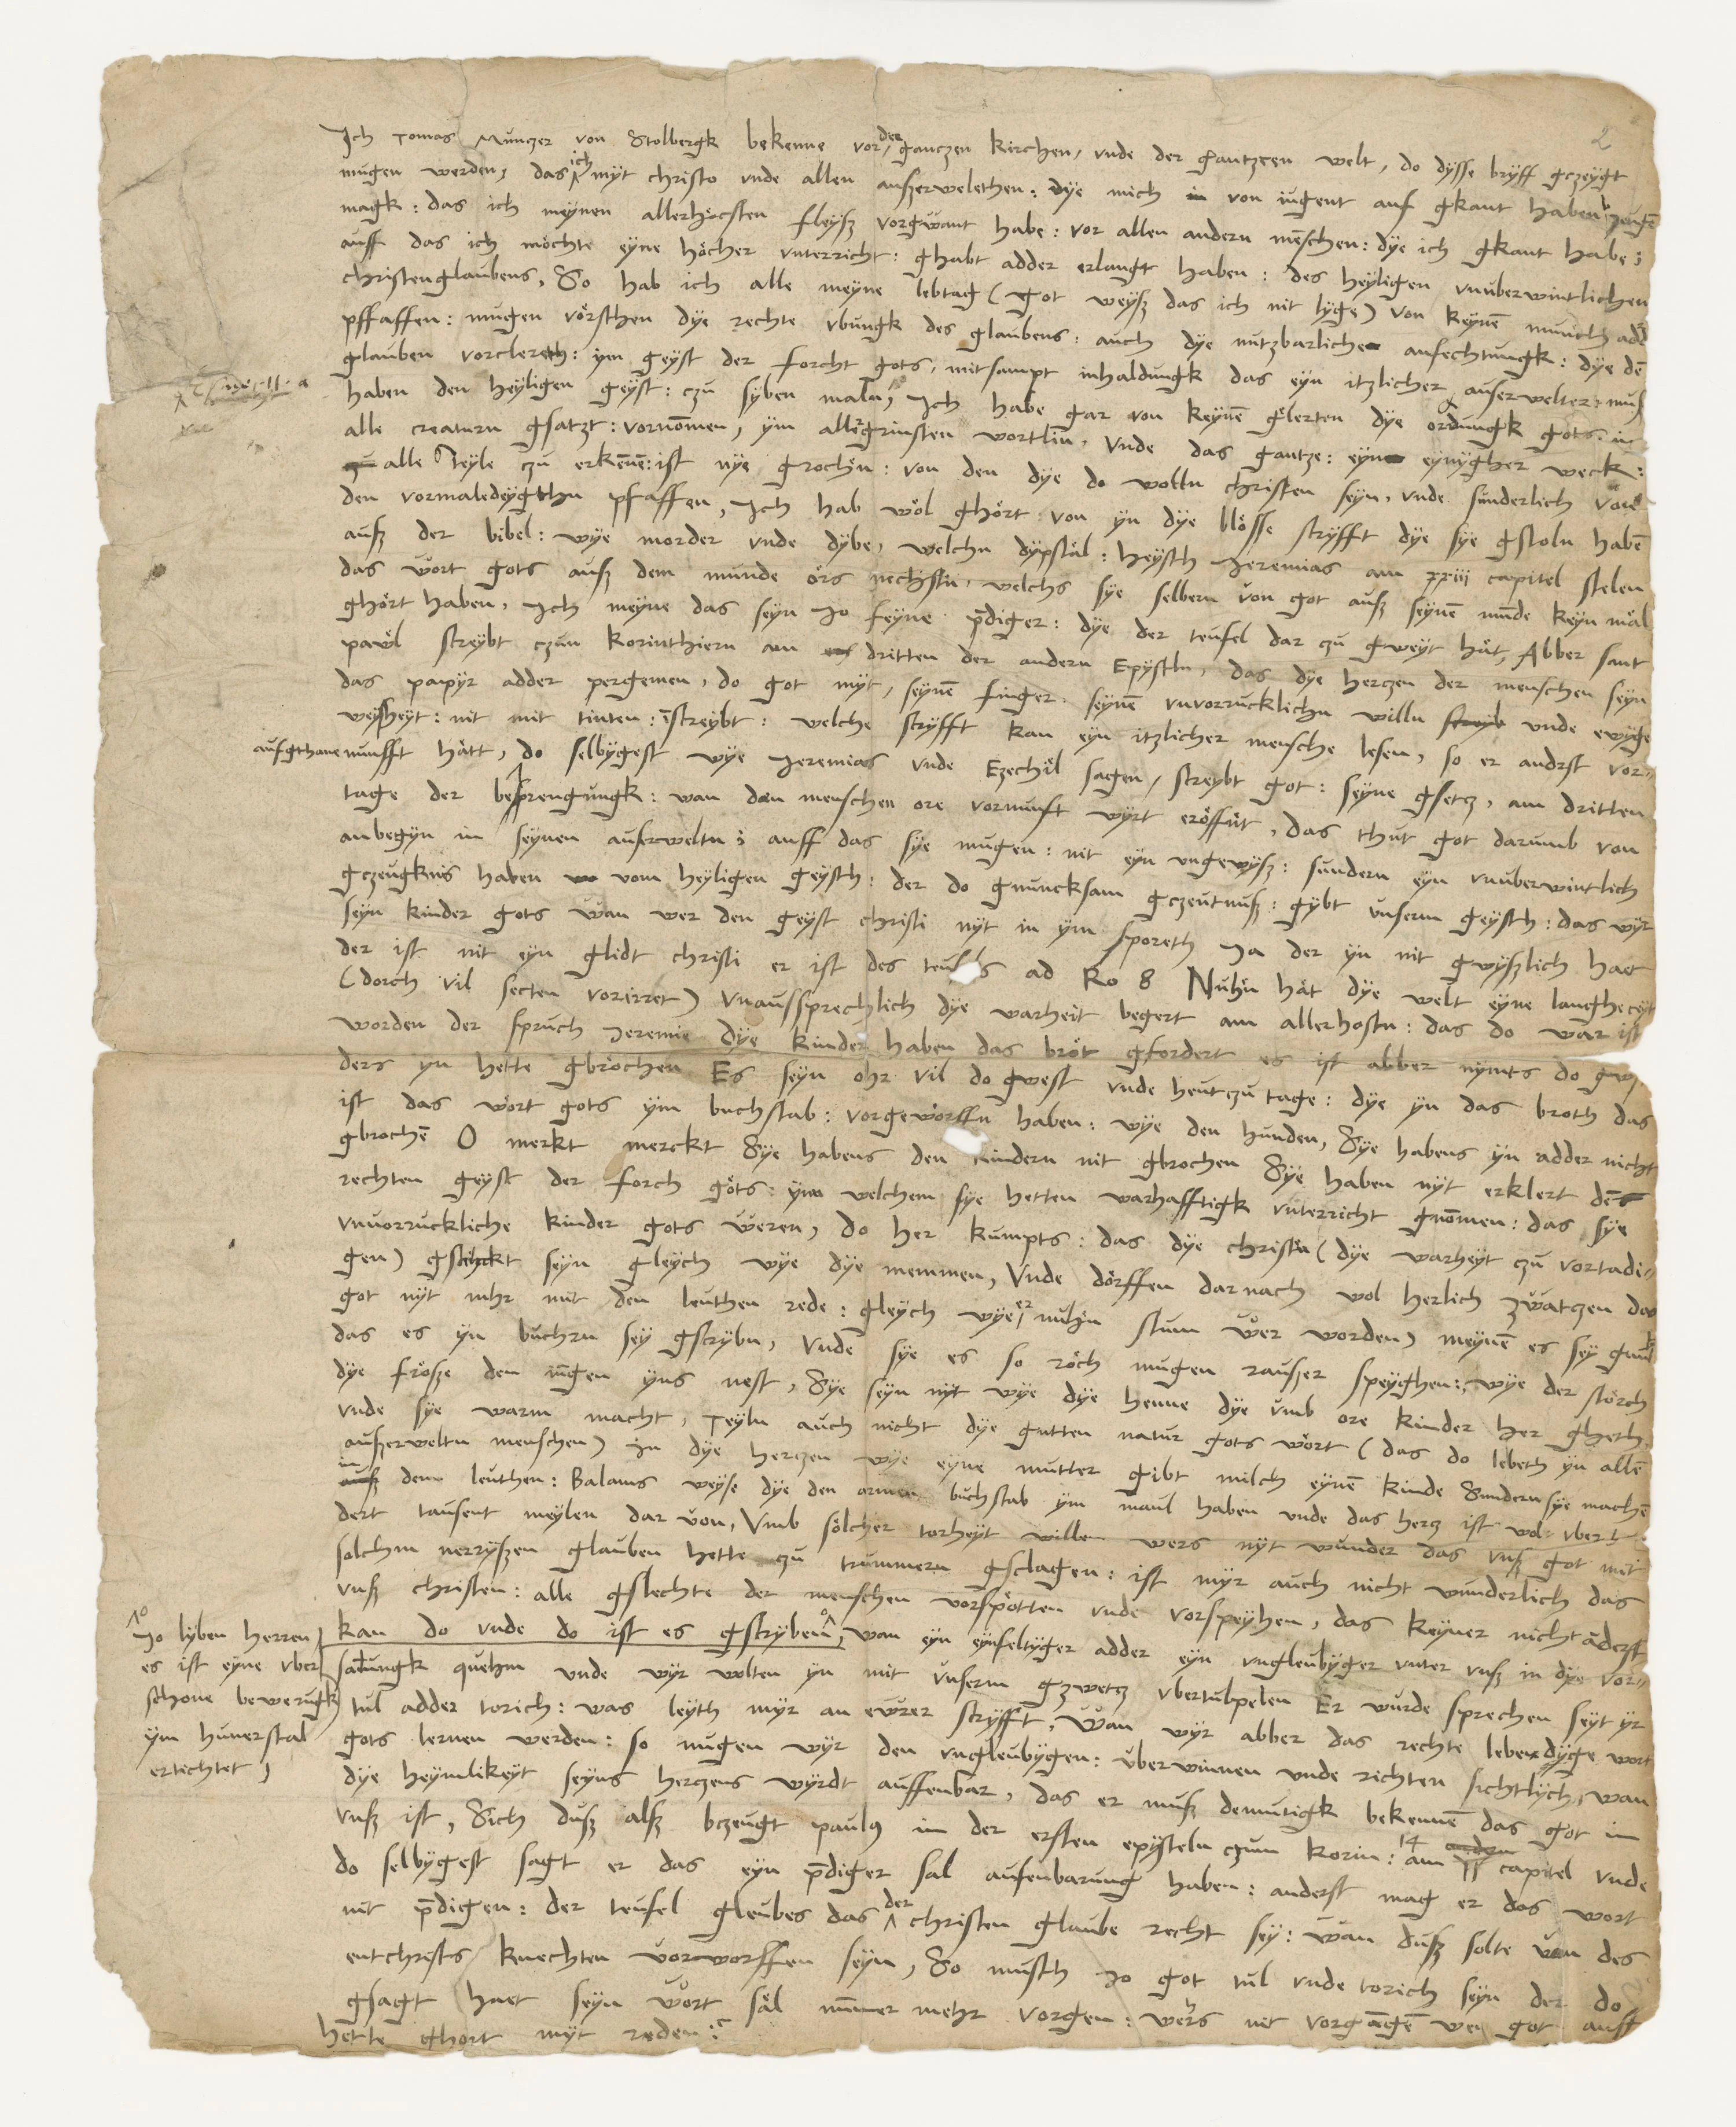 2
Ich Tomas Muntzer von Stolbergk bekenne vor der gantzen kirchen, vnde der gantzeen welt, do dysse bryff gczeygt
mugen werden, das ich myt christo vnde allen auszerwelethen: dye mich von iugent auf gkant haben bezeugē
magk: das ich meynen allerhöcsten fleysz vorgwant habe: vor allen andern mēschen: dye ich gkant habe;
auff das ich möchte eyne höcher vnterricht: ghabt adder erlangt haben: des heyligen vnuberwintlichen
christenglaubens, So hab ich alle meyne lebtag (got weysz das ich nit lyge) von keynē munch add
pffaffen: mugen vörschen dye rechte vbungk des glaubens: auch dye nutzbarliche anfechtungk: dye dē
glauben vorclereth: ym geyst der forcht gots, mitsampt inhaldungk das eyn itzlicher auserwelter: musz
haben den heyligen geyst: czu syben maln, Ich habe gar von keynē glerten dye ordungk gots: in
alle creaturn gsatzt: vornōmen, ym allergrinsten wortlin, Vnde das gantze: eyn eynygher weck:
alle Teyle czu erkēnē: ist nye grochn: von den dye do wolln christen seyn, vnde sunderlich von
den vormaledeygthn pfaffen, Ich hab wöl ghört von yn dye blösse scryfft dye sye gstoln habē
ausz der bibel: wye morder vnde dybe, welchn dypstäl: heysth Jeremias am xxiij capitel stelen
das wort gots ausz dem munde örs nechstn, welchs sye selbern von got ausz seynē mūde keyn mäl
ghört haben, Ich meyne das seyn Jo feyne pdiger: dye der teufel dar czu gweyt hät, Abber sant
pavöl screybt czun korinthiern am dritten der andern Epysteln, das dye herczen der menschen seyn
das papyr adder pergemen, do got myt, seynē finger, seynē vnvorrucklichn willn vnde ewyge
weysheyt: nit mit tinten: īscreybt: welche scryfft kan eyn itzlicher mensche lesen, so er andrst vor=
aufgthane nunfft hätt, do selbygest wye Jeremias vnde Ezechiel sagen, screybt got: seyne gsetcz, am dritten
tage der besprengungk: wan den menschen ore vornunft wyrt eröffnt, das thut got darumb von
anbegyn in seynen auserweltn; auff das sye mugen: nit eyn vngewysz: sundern eyn vnuberwintlich
gczeugknis haben vom heyligen geysth: der do gnuncksam gczeutnusz: gybt vnserm geysth: das wyr
seyn kinder gots wan wer den geyst christi nyt in ym sporeth Ja der yn nit gwyszlich haet
der ist nit eyn glidt christi er ist des teufels ad Ro 8 Nuhn hät dye welt eyne langheczeyt
(dorch vil secten vorirret) vnaussprechlich dye warheit begert am allerhostn: das do war ist
worden der spruch Jeremie dye kinder haben das bröt gfordert es ist abber nymts do gw
ders yn hette gbrochen Es seyn ohr vil do gwest vnde heutczu tage: dye yn das broth das
ist das wort gots ym buchstab: vorgeworffn haben: wye den hunden, Sye habens yn adder nicht
gbrochē O merkt merckt Sye habens den kindern nit gbrochen Sye haben nyt erklert den
rechten geyst der forch göts: ym welchem sye hetten warhafftigk vnterricht gnōmen: das sye
vnvorruckliche kinder gots weren, do her kumpts: das dye christn (dye warheyt czu vortadi=
gen) gschickt seyn gleych wye dye memmen, Vnde dörffen darnach wol herlich zwatczen das
got nyt mhr mit den leuthen rede: gleych wye er nuhn stum wer worden, meynē es sey gnuk
das es yn buchrn sey gscrybn, Vnde sye es so röch mugen rauszer speyghen: wye der störch
dye frösze den iūgen yns nest, Sye seyn nyt wye dye henne dye vmb ore kinder her gheth
vnde sye warm macht, Teyln auch nicht dye gutten natur gots wort (das do lebeth yn allē
auszerweltn menschen) in dye herczen wye eyne mutter gibt milch eynē kinde Sundern sye machē
in den leuthen: Balams weyse dye den armen buchstab ym maul haben vnde das hercz ist wol vber
dert tausent meylen dar von, Vmb sölcher torheyt willen wers nyt wunder das vnsz got mit
solchem nerryszen glauben hette czu trummern gsclagen: ist myr auch nicht wunderlich das
vnsz christen: alle gslechte der menschen vorspötten vnde vorspeyhen, das keyner nicht āderst
kan do vnde do ist es gscryben, wan eyn eynfeltyger adder eyn vngleubyger vnter vnsz in dye vor=
Jo lyben herren
es ist eyne vber
schone bewerungk
ym hunerstal
ertichtet,
samlungk quehm vnde wyr wolten yn mit vnserm gzwetcz vbertulpelen Er wurde sprechen seyt yr
tul adder torich: was leyth myr an ewrer scryfft, Wan wyr abber das rechte lebendyge wort
gots lernen werden: so mugen wyr den vngleubygen: vberwinnen vnde richten sichtlych, wan
dye heymlikeyt seyns herczens wyrdt auffenbar, das er musz demutigk bekennē das got in
vnsz ist, Sich dusz alsz bczeugt paulus in der ersten epysteln czum korin: am 14 capitel vnde
do selbygest sagt er das eyn pdiger sal aufenbarung haben: anderst mag er das wort
nit pdigen: der teufel gleubes das der christen glaube recht sey: wan dusz solte von des
entchrists knechten vorworffen seyn, So musth Jo got tul vnde torich seyn der do
gsagt haet seyn wort säl nūmer mehr vorgen: wers nit vorgāgē wen got auff
hette ghort myt reden: